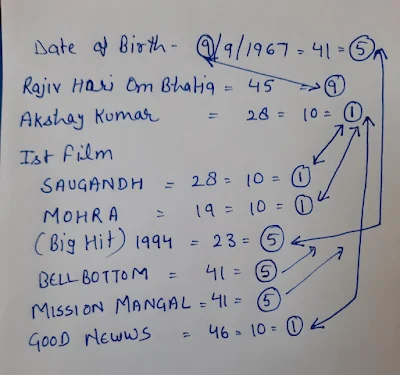 Date of Birth - 9/9/1967 = 41 = 5
Rajiv Hari Om Bhatia = 45 = 9
Akshay Kumar = 28 = 10 = 1
Ist Film
SAUGANDH = 28 = 10 = 1
MOHRA = 19 = 10 = 1
(Big Hit) 1994 = 23 = 5
BELL BOTTOM = 41 = 5
MISSION MANGAL = 41 = 5
GOOD NEWWS = 46 = 10 = 1